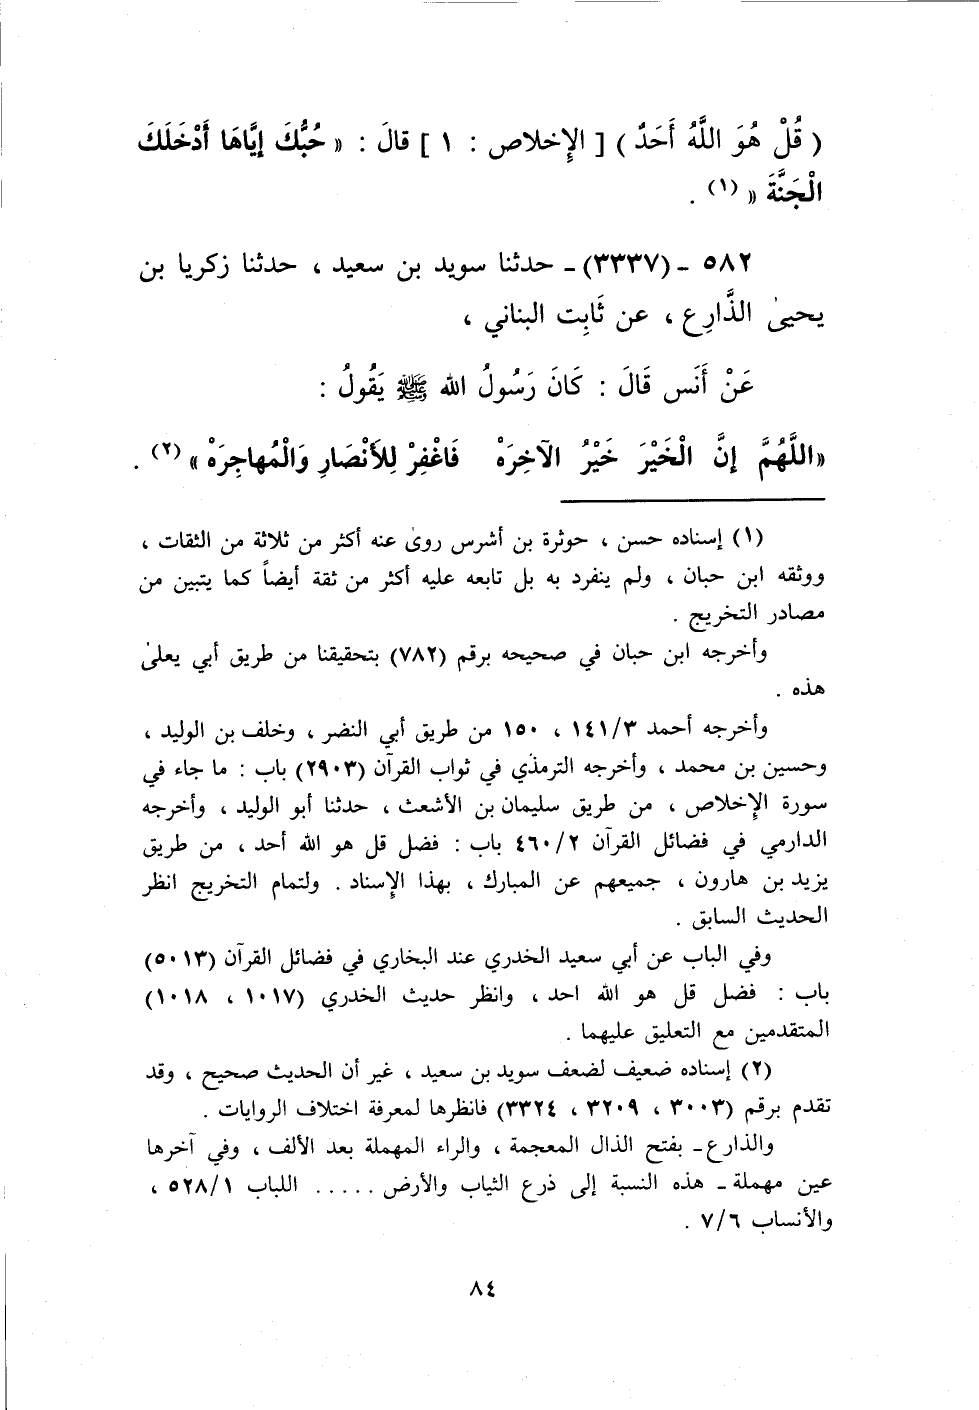 ( قُلْ هُوَ اللَّهُ أَحَدٌ ) [ الإِخلاص : ١ ] قالَ : « حُبُّكَ إِيَّاهَا أَدْخَلَكَ
الْجَنَّةَ » (١) .
٥٨٢ ـ (٣٣٣٧) ـ حدثنا سويد بن سعيد ، حدثنا زكريا بن
يحيىٰ الذَّارِع ، عن ثَابِت البناني ،
عَنْ أَنَس قَالَ : كَانَ رَسُولُ الله ﷺ يَقُولُ :
«اللَّهُمَّ إِنَّ الْخَيْرَ خَيْرُ الآخِرَهْ فَاغْفِرْ لِلأَنْصَارِ وَالْمُهاجِرَهْ » (٢) .
(١) إسناده حسن ، حوثرة بن أشرس روىٰ عنه أكثر من ثلاثة من الثقات ،
ووثقه ابن حبان ، ولم ينفرد به بل تابعه عليه أكثر من ثقة أيضاً كما يتبين من
مصادر التخريج .
وأخرجه ابن حبان في صحيحه برقم (٧٨٢) بتحقيقنا من طريق أبي يعلىٰ
هذه .
وأخرجه أحمد ١٤١/٣ ، ١٥٠ من طريق أبي النضر ، وخلف بن الوليد ،
وحسين بن محمد ، وأخرجه الترمذي في ثواب القرآن (٢٩٠٣) باب : ما جاء في
سورة الإِخلاص ، من طريق سليمان بن الأشعث ، حدثنا أبو الوليد ، وأخرجه
الدارمي في فضائل القرآن ٤٦٠/٢ باب : فضل قل هو الله أحد ، من طريق
يزيد بن هارون ، جميعهم عن المبارك ، بهذا الإِسناد . ولتمام التخريج انظر
الحديث السابق .
وفي الباب عن أبي سعيد الخدري عند البخاري في فضائل القرآن (٥٠١٣)
باب : فضل قل هو الله احد ، وانظر حديث الخدري (١٠١٧ ، ١٠١٨)
المتقدمين مع التعليق عليهما .
(٢) إسناده ضعيف لضعف سويد بن سعيد ، غير أن الحديث صحيح ، وقد
تقدم برقم (٣٠٠٣ ، ٣٢٠٩ ، ٣٣٢٤) فانظرها لمعرفة اختلاف الروايات .
والذارع ـ بفتح الذال المعجمة ، والراء المهملة بعد الألف ، وفي آخرها
عين مهملة ـ هذه النسبة إلى ذرع الثياب والأرض ..... اللباب ٥٢٨/١ ،
والأنساب ٧/٦ .
٨٤